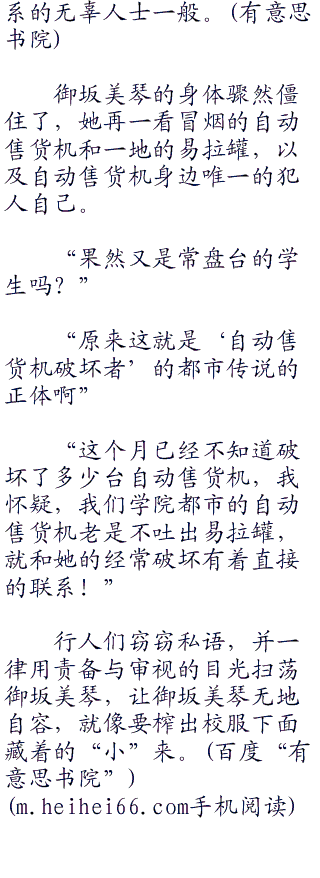 系的无辜人士一般。(有意思
书院)
御坂美琴的身体骤然僵
住了，她再一看冒烟的自动
售货机和一地的易拉罐，以
及自动售货机身边唯一的犯
人自己。
“果然又是常盘台的学
生吗？”
“原来这就是‘自动售
货机破坏者’的都市传说的
正体啊”
“这个月已经不知道破
坏了多少台自动售货机，我
怀疑，我们学院都市的自动
售货机老是不吐出易拉罐，
就和她的经常破坏有着直接
的联系！”
行人们窃窃私语，并一
律用责备与审视的目光扫荡
御坂美琴，让御坂美琴无地
自容，就像要榨出校服下面
藏着的“小”来。(百度“有
意思书院”)
(m.heihei66.com手机阅读)